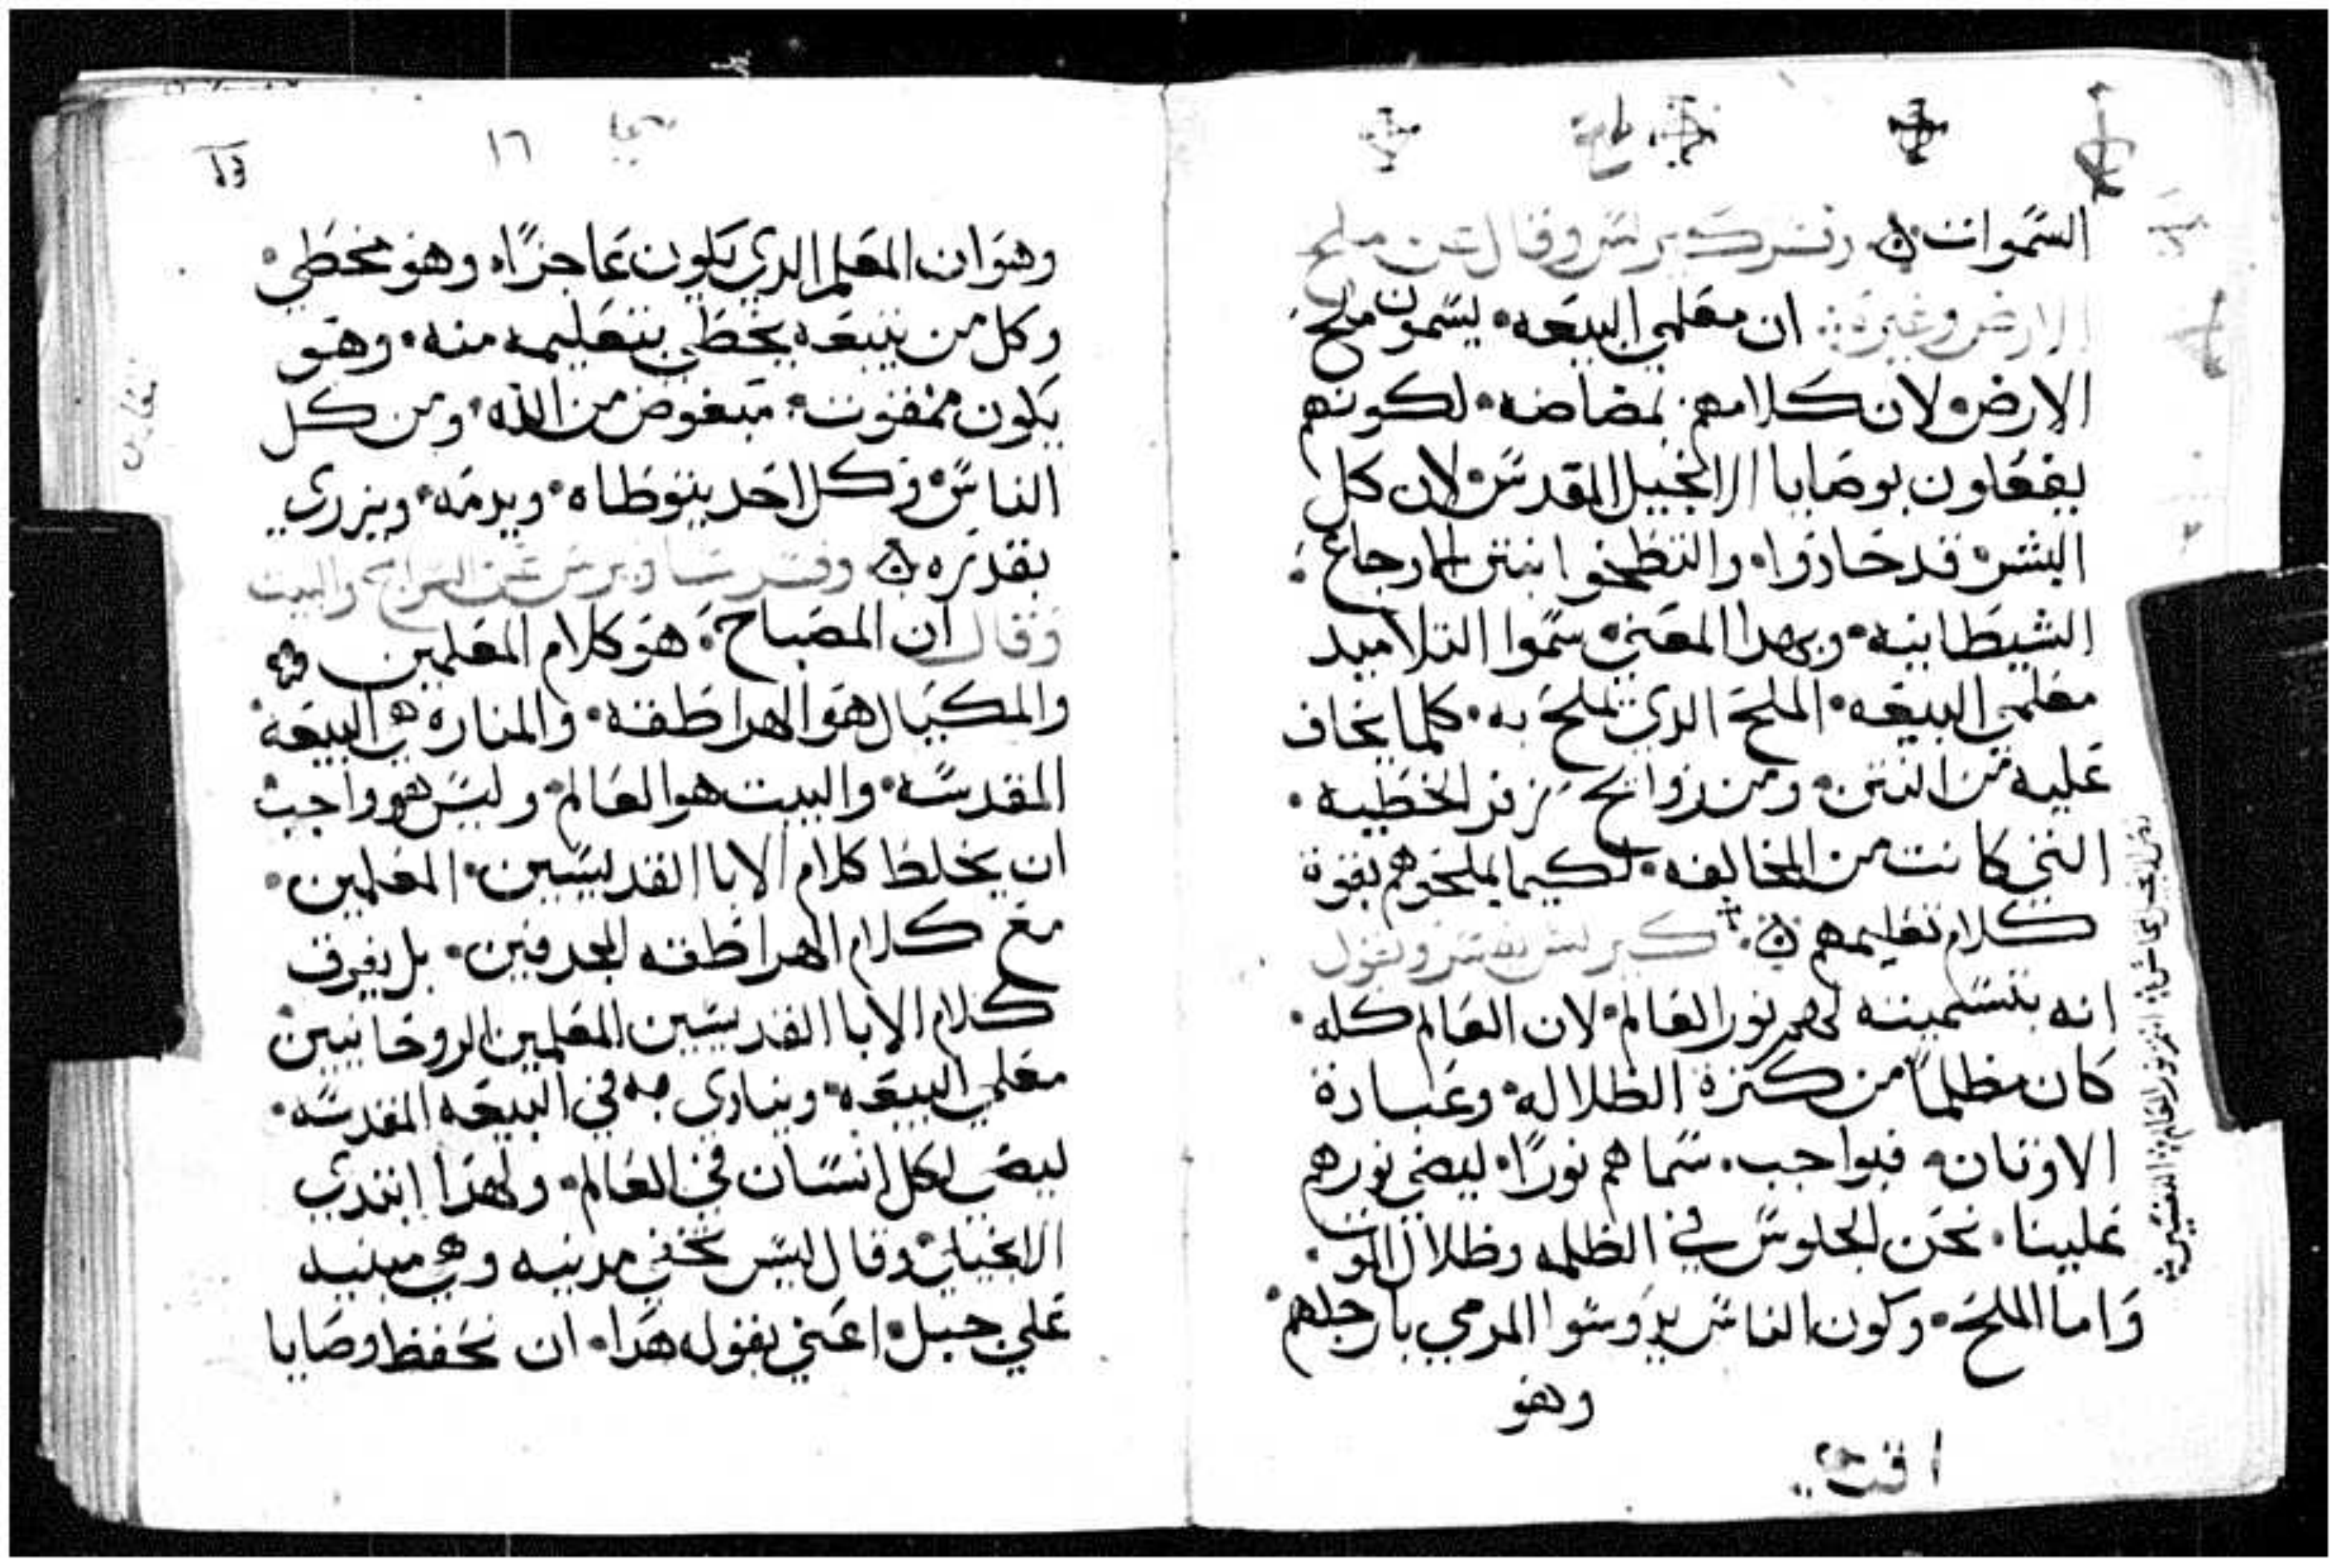 السموات وفسر كيرلس وقال عن ملح
الارض وغيره ان معلمي البيعه يسمون ملح
الارض لان كلامهم بمضاضه لكونهم
يفعلون بوصايا الانجيل المقدس لان كل
البشر قد حادوا والتطخوا بنتن اوجاع
الشيطانيه وبهدا المعني سموا التلاميد
معلمي البيعه الملح الدي تملح به كلما يخاف
عليه من النتن ومن روايح زفر الخطيه
التي كانت من المخالفه لكيما يملحوهم بقوة
كلام تعليمهم كيرلس يفسر ويقول
انه بتسميته لهم نور العالم لان العالم كله
كان مظلماً من كثرة الظلاله وعبادة
الاوتان فبواجب سماهم نوراً ليضي نورهم
علينا نحن الجلوس في الظلمه وظلال الموت
واما الملح وكون الناس يدوسوا المرمي بارجلهم
وهو
١٦
وهو ان المعلم الدي يكون عاجزاً وهو مخطي
وكل من يتبعه يخطي بتعليمه منه وهو
يكون ممقوت مبغوض من الله ومن كل
الناس وكل احد يتوطاه ويدمه ويزري
بقدره وفسر ساويرس عن السراج والبيت
وقال ان المصباح هو كلام المعلمين
والمكيال هو الهراطقه والمناره هي البيعه
المقدسه والبيت هو العالم وليس هو واجب
ان يخلط كلام الابا القديسين المعلمين
مع كلام الهراطقه المجدفين بل يفرق
كلام الابا القديسين المعلمين الروحانيين
معلمي البيعه وينادي به في البيعه المقدسه
ليضي لكل انسان في العالم ولهدا ابتدي
الانجيلي وقال ليس تخفي مدينه وهي مبنيه
علي جبل اعني بقوله هدا ان نحفظ وصايا